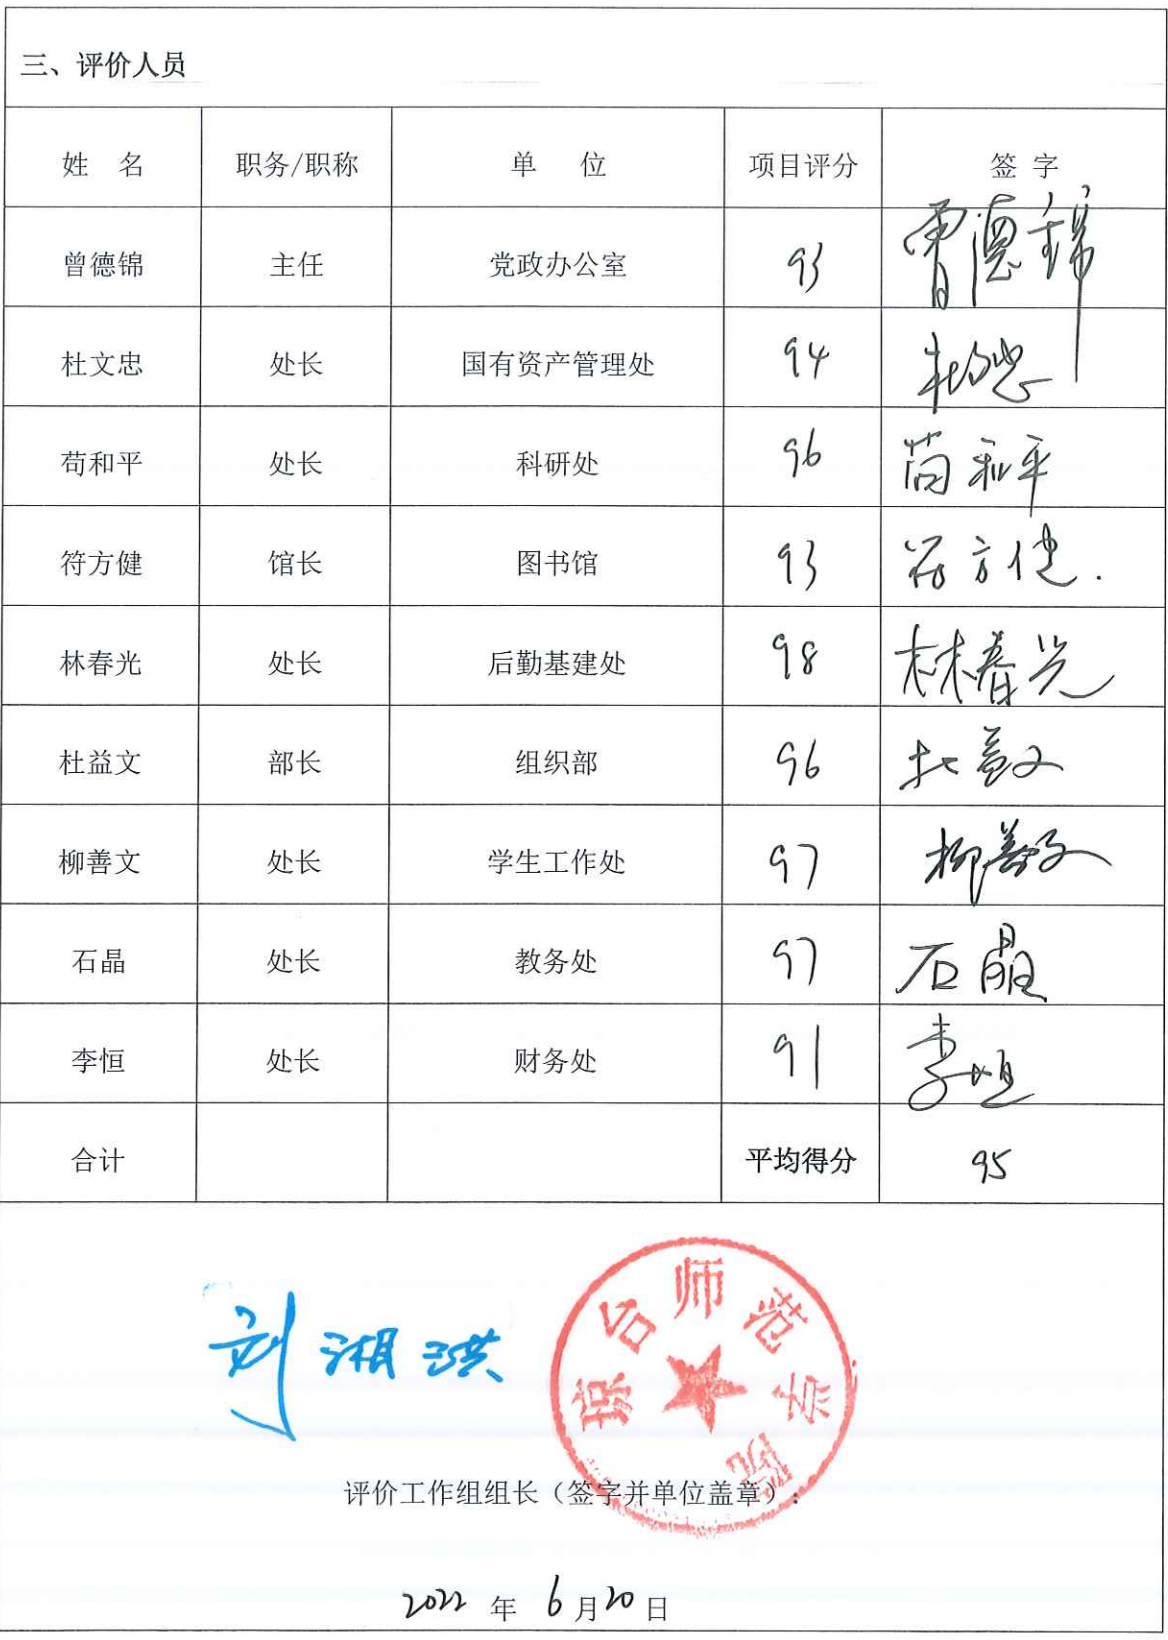 三、评价人员
姓 名 职务/职称 单 位 项目评分 签 字
曾德锦 主任 党政办公室 93 曾德锦
杜文忠 处长 国有资产管理处 94 杜文忠
苟和平 处长 科研处 96 苟和平
符方健 馆长 图书馆 93 符方健
林春光 处长 后勤基建处 98 林春光
杜益文 部长 组织部 96 杜益文
柳善文 处长 学生工作处 97 柳善文
石晶 处长 教务处 97 石晶
李恒 处长 财务处 91 李恒
合计 平均得分 95
琼台师范学院
刘湘洪
评价工作组组长（签字并单位盖章）：
2022 年 6 月 20 日